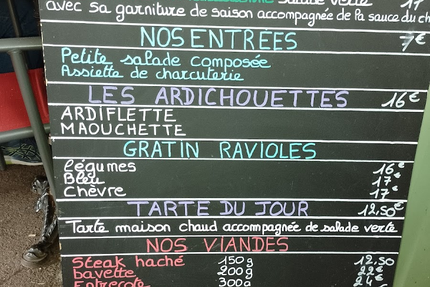 salade verte 17
avec sa garniture de saison accompagnée de la sauce du ch
NOS ENTRÉES 7€
Petite salade composée
Assiette de charcuterie
LES ARDICHOUETTES 16€
ARDIFLETTE
MAOUCHETTE
GRATIN RAVIOLES
légumes 16€
Bleu 17€
Chèvre 17€
TARTE DU JOUR 12,50€
Tarte maison chaud accompagnée de salade verte
NOS VIANDES
Steak haché 150g 12,50
bavette 200g 22€
Entrecote 300g 24€